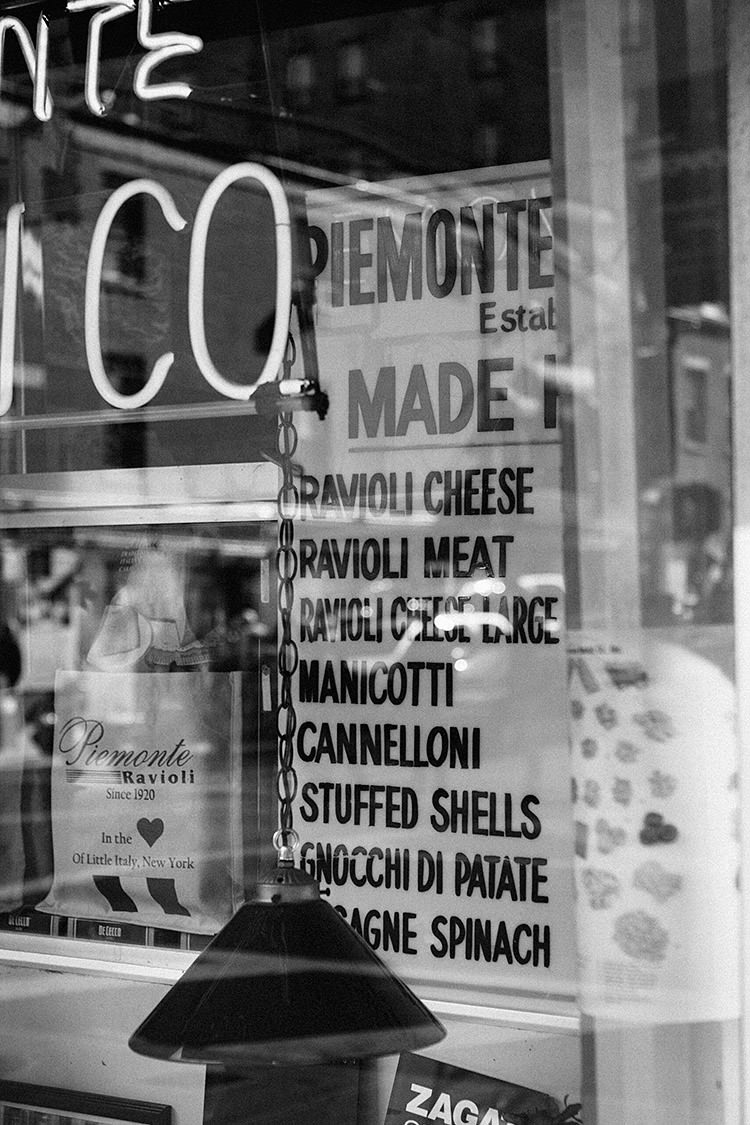 NTE
CO
PIEMONTE
Estab
MADE H
RAVIOLI CHEESE
RAVIOLI MEAT
RAVIOLI CHEESE LARGE
MANICOTTI
CANNELLONI
STUFFED SHELLS
GNOCCHI DI PATATE
SAGNE SPINACH
Piemonte
Ravioli
Since 1920
In the
Of Little Italy, New York
DE CECCO
DE CECCO
ZAGAT